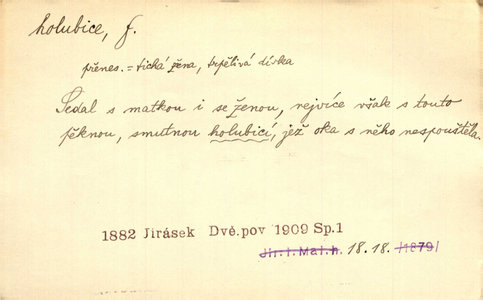 holubice, f.
přenes. = tichá žena, trpělivá dívka
Sedal s matkou i se ženou, nejvíce však s touto
pěknou, smutnou holubicí, jež oka s něho nespouštěla.
1882 Jirásek Dvě.pov 1909 Sp.1
Jir. I. Mal. h. 18.18. /1879/